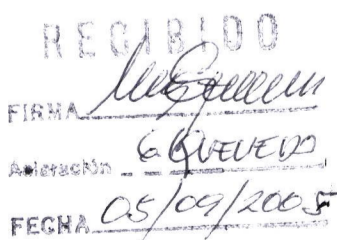 RECIBIDO
FIRMA
Aclaración G QUEVEDO
FECHA 05/09/2005